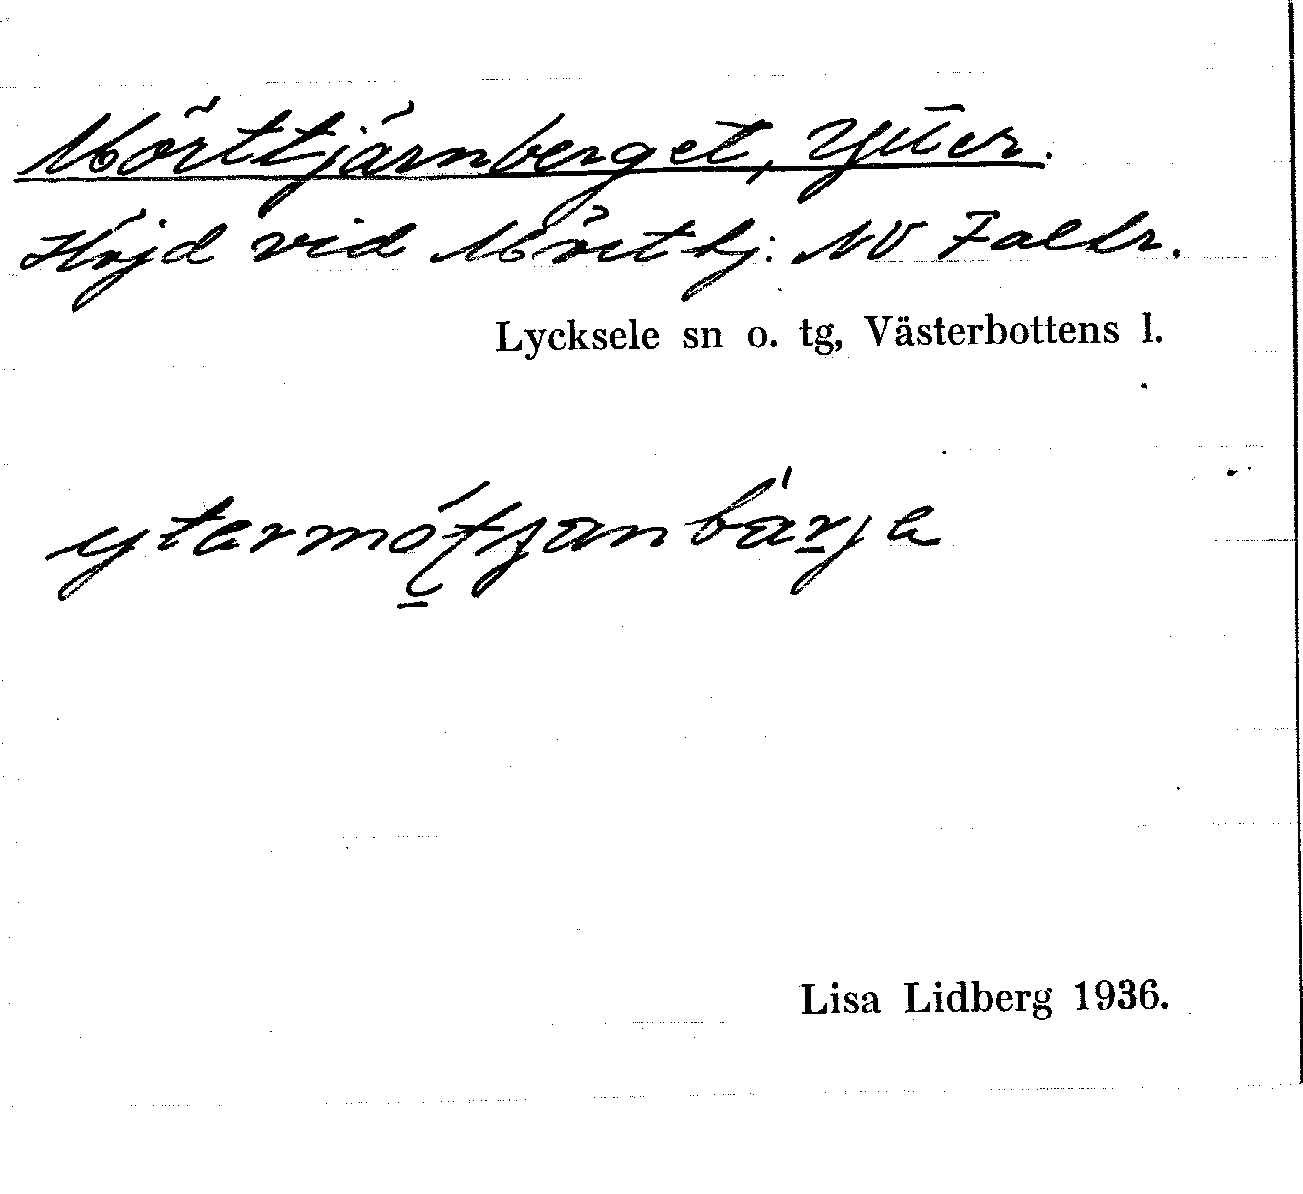 Mörttjärnberget, Ytter.
Höjd vid Mörttj: NV
Lycksele sn o. tg, Västerbottens l.
Lisa Lidberg 1936.